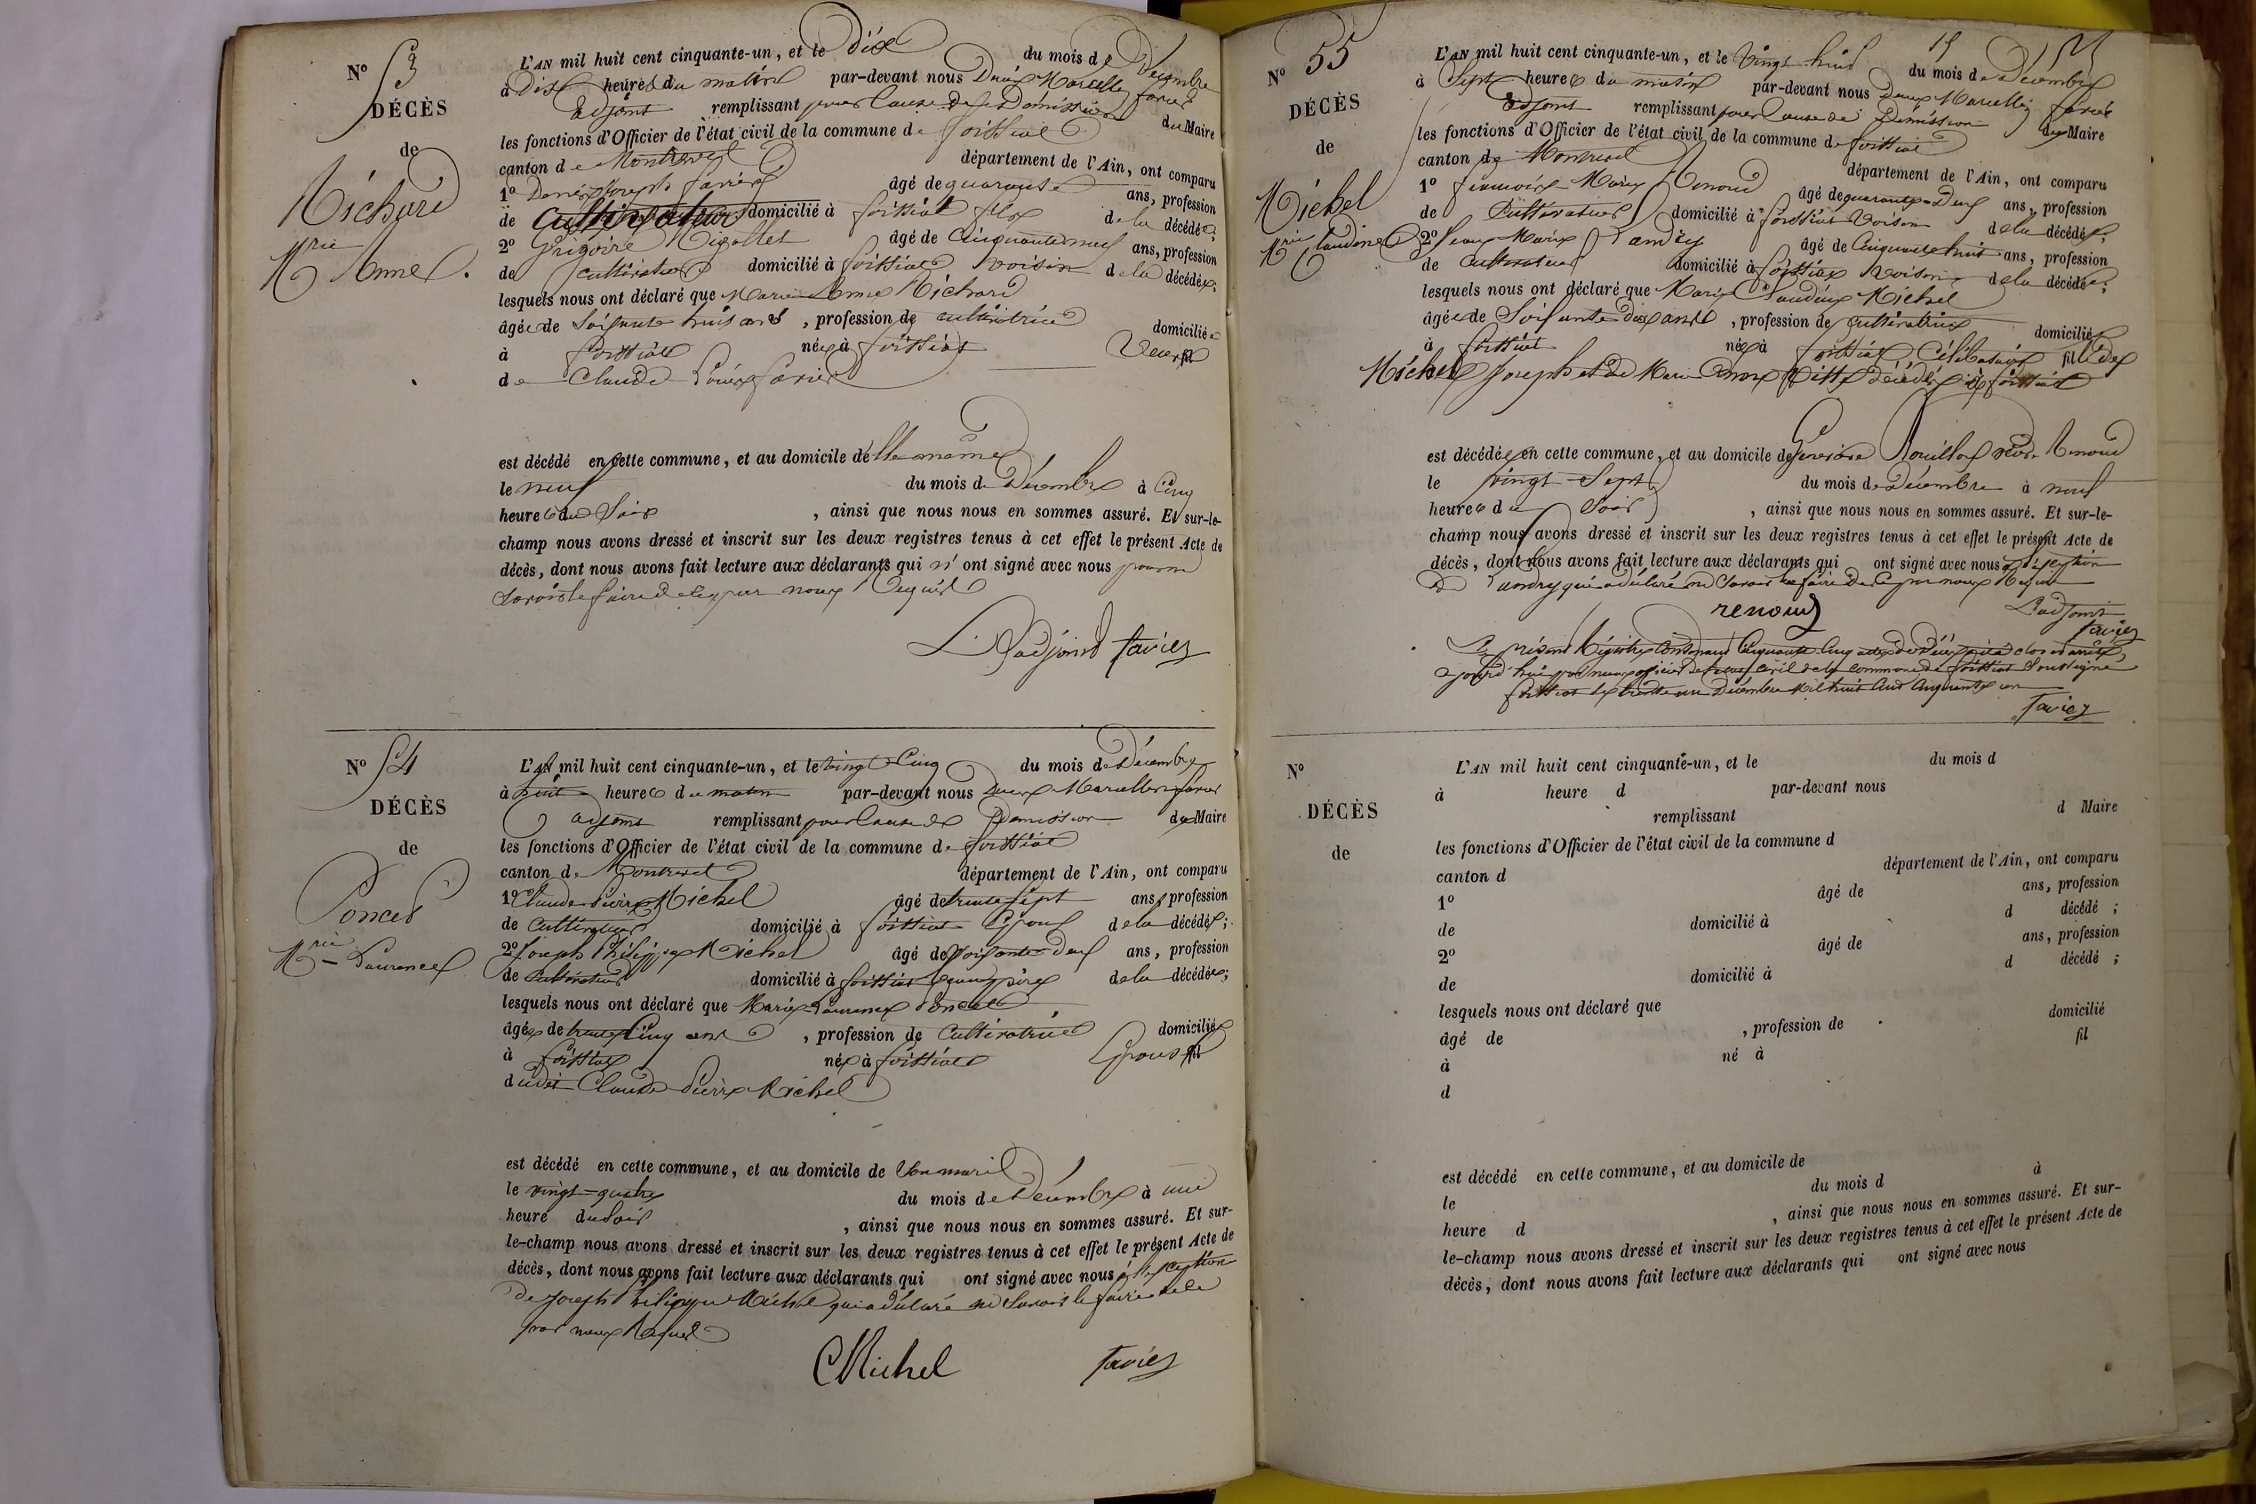 N° 53
DÉCÈS
de
Richard
Mrie Anne.
L'AN mil huit cent cinquante-un, et le dix du mois de Décembre
à dix heures du matin par-devant nous Marcellin favier
adjoint remplissant pour cause de Démission du Maire
les fonctions d'Officier de l'état civil de la commune de foissiat
canton de Montrevel département de l'Ain, ont comparu
1° Joseph favier âgé de quarante ans, profession
de cultivateur domicilié à foissiat fils de la décédée;
2° Grégoire Rigollet âgé de Cinquante neuf ans, profession
de cultivateur domicilié à foissiat voisin de la décédée;
lesquels nous ont déclaré que Marie Anne Richard
âgée de Soixante huit ans, profession de cultivatrice domiciliée
à foissiat née à foissiat Veuve
de Claude Louis favier
est décédé en cette commune, et au domicile d'elle même
le neuf du mois de Décembre à Cinq
heures du Soir, ainsi que nous nous en sommes assuré. Et sur-le-
champ nous avons dressé et inscrit sur les deux registres tenus à cet effet le présent Acte de
décès, dont nous avons fait lecture aux déclarants qui n'ont signé avec nous pour ne
savoir le faire de ce par nous Requis
L'adjoint favier
N° 54
DÉCÈS
de
Poncet
Mrie Laurence
L'AN mil huit cent cinquante-un, et le vingt Cinq du mois de Décembre
à huit heures du matin par-devant nous Marcellin favier
adjoint remplissant pour Cause de Démission du Maire
les fonctions d'Officier de l'état civil de la commune de foissiat
canton de Montrevel département de l'Ain, ont comparu
1° Claude Pierre Michel âgé de trente Sept ans, profession
de Cultivateur domicilié à foissiat Epoux de la décédée;
2° Joseph Philippe Michel âgé de Soixante Deux ans, profession
de Cultivateur domicilié à foissiat Beau père de la décédée;
lesquels nous ont déclaré que Marie Laurence Poncet
âgée de trente Cinq ans, profession de Cultivatrice domiciliée
à foissiat née à foissiat Epouse
dudit Claude Pierre Michel
est décédé en cette commune, et au domicile de Son mari
le vingt-quatre du mois de Décembre à une
heure du Soir, ainsi que nous nous en sommes assuré. Et sur-
le-champ nous avons dressé et inscrit sur les deux registres tenus à cet effet le présent Acte de
décès, dont nous avons fait lecture aux déclarants qui ont signé avec nous à l'exception
de Joseph Philippe Michel qui a déclaré ne Savoir le faire de ce
par nous Requis
CMichel favier
N° 55
DÉCÈS
de
Michel
Mrie Claudine
L'AN mil huit cent cinquante-un, et le Vingt huit du mois de Décembre
à Sept heures du matin par-devant nous Marcellin favier
adjoint remplissant pour cause de Démission du Maire
les fonctions d'Officier de l'état civil de la commune de foissiat
canton de Montrevel département de l'Ain, ont comparu
1° françois Marie Renoud âgé de quarante-Deux ans, profession
de Cultivateur domicilié à foissiat Voisin de la décédée;
2° Jean Marie Landry âgé de Cinquante huit ans, profession
de Cultivateur domicilié à foissiat Voisin de la décédée;
lesquels nous ont déclaré que Marie Claudine Michel
âgée de Soixante Dix ans, profession de Cultivatrice domiciliée
à foissiat née à foissiat Célibataire fille de
Michel Joseph et de Marie Anne décédés à foissiat
est décédée en cette commune, et au domicile de Bouillot veuve Renoud
le vingt-Sept du mois de Décembre à neuf
heures du Soir, ainsi que nous nous en sommes assuré. Et sur-le-
champ nous avons dressé et inscrit sur les deux registres tenus à cet effet le présent Acte de
décès, dont nous avons fait lecture aux déclarants qui ont signé avec nous à l'exception
de Landry qui a déclaré ne Savoir le faire de ce par nous Requis
renoud L'adjoint
favier
Le présent Régistre Contenant Cinquante Cinq actes de Décès a été clos et arrêté
aujourd'hui par nous officier de l'état civil de la commune de foissiat Soussigné
foissiat le trente un Décembre Mil huit Cent Cinquante un
favier
N°
DÉCÈS
de
L'AN mil huit cent cinquante-un, et le du mois d
à heure d par-devant nous
remplissant d Maire
les fonctions d'Officier de l'état civil de la commune d
canton d département de l'Ain, ont comparu
1° âgé de ans, profession
de domicilié à d décédé ;
2° âgé de ans, profession
de domicilié à d décédé ;
lesquels nous ont déclaré que
âgé de , profession de domicilié
à né à fil
d
est décédé en cette commune, et au domicile de
le du mois d à
heure d , ainsi que nous nous en sommes assuré. Et sur-
le-champ nous avons dressé et inscrit sur les deux registres tenus à cet effet le présent Acte de
décès, dont nous avons fait lecture aux déclarants qui ont signé avec nous